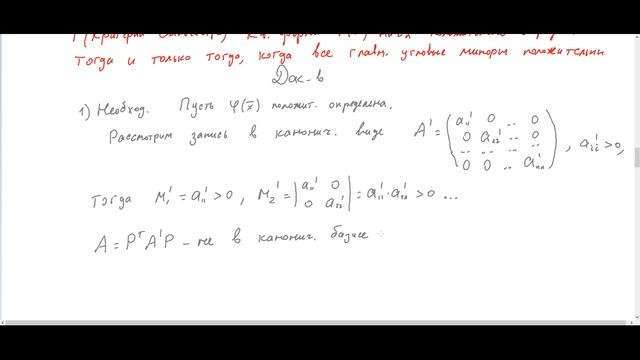 Т (Критерий
тогда и только тогда, когда все главн. угловые миноры положительны
Док-в
1) Необход. Пусть φ(x̄) положит. определена.
Рассмотрим запись в канонич. виде A' = (a₁₁' 0 .. 0
0 a₂₂' .. 0
.. .. .. ..
0 0 .. aₙₙ'), aᵢᵢ' > 0,
Тогда M₁' = a₁₁' > 0, M₂' = |a₁₁' 0
0 a₂₂'| = a₁₁' · a₂₂' > 0 ...
A = PᵀA'P – не в канонич. базисе